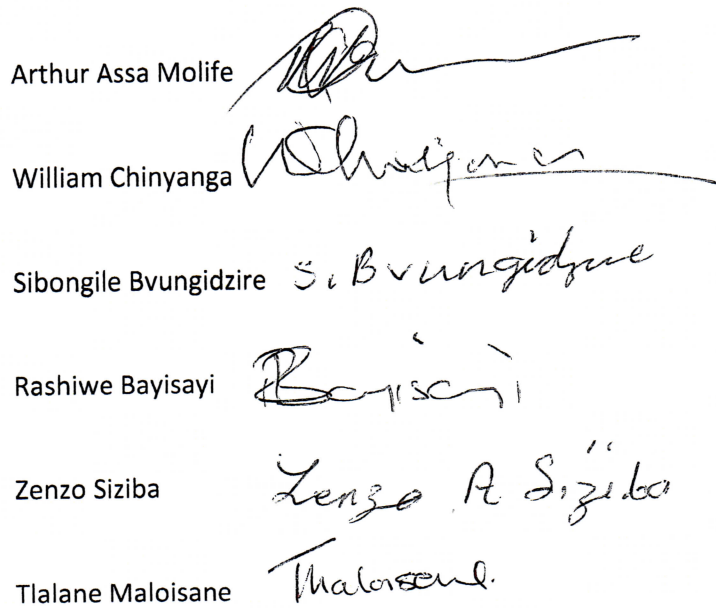 Arthur Assa Molife
William Chinyanga WChinyanga
Sibongile Bvungidzire S. Bvungidzire
Rashiwe Bayisayi RBayisayi
Zenzo Siziba Zenzo A Siziba
Tlalane Maloisane TMaloisane.